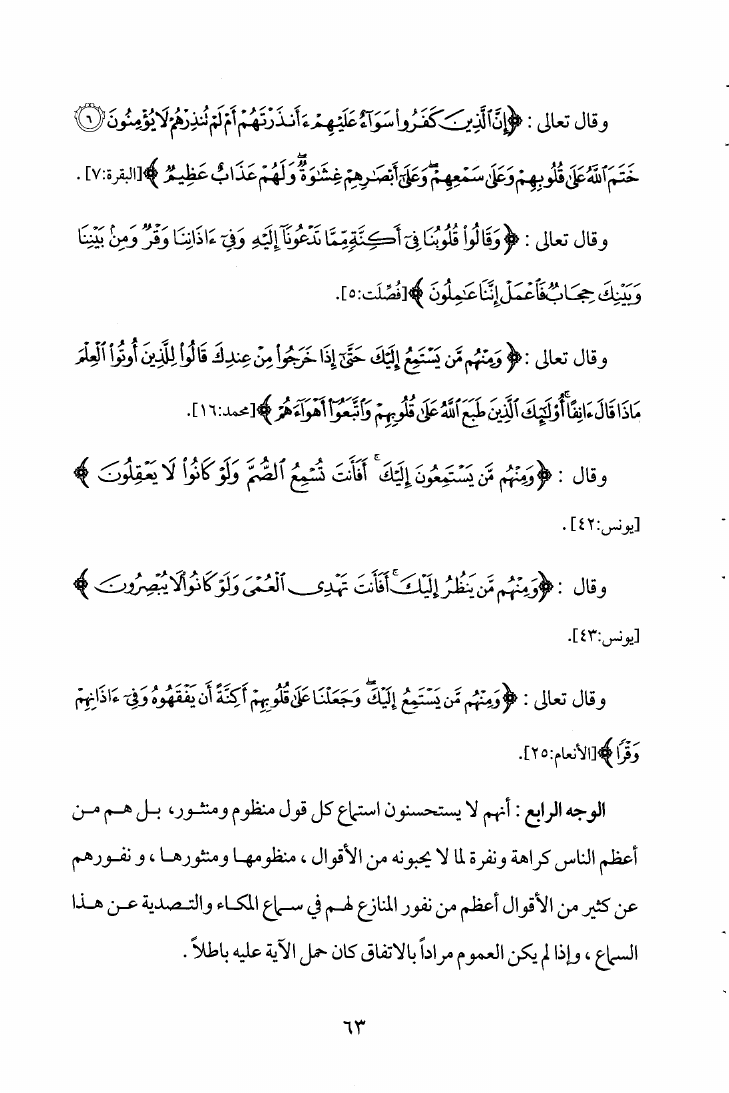 وقال تعالى : ﴿إِنَّ ٱلَّذِينَ كَفَرُوا۟ سَوَآءٌ عَلَيْهِمْ ءَأَنذَرْتَهُمْ أَمْ لَمْ تُنذِرْهُمْ لَا يُؤْمِنُونَ ٦
خَتَمَ ٱللَّهُ عَلَىٰ قُلُوبِهِمْ وَعَلَىٰ سَمْعِهِمْ ۖ وَعَلَىٰٓ أَبْصَـٰرِهِمْ غِشَـٰوَةٌ ۖ وَلَهُمْ عَذَابٌ عَظِيمٌ ﴾[البقرة:٧] .
وقال تعالى : ﴿ وَقَالُوا۟ قُلُوبُنَا فِىٓ أَكِنَّةٍ مِّمَّا تَدْعُونَآ إِلَيْهِ وَفِىٓ ءَاذَانِنَا وَقْرٌ وَمِنۢ بَيْنِنَا
وَبَيْنِكَ حِجَابٌ فَٱعْمَلْ إِنَّنَا عَـٰمِلُونَ ﴾[فُصِّلَت:٥].
وقال تعالى : ﴿ وَمِنْهُم مَّن يَسْتَمِعُ إِلَيْكَ حَتَّىٰٓ إِذَا خَرَجُوا۟ مِنْ عِندِكَ قَالُوا۟ لِلَّذِينَ أُوتُوا۟ ٱلْعِلْمَ
مَاذَا قَالَ ءَانِفًا ۚ أُو۟لَـٰٓئِكَ ٱلَّذِينَ طَبَعَ ٱللَّهُ عَلَىٰ قُلُوبِهِمْ وَٱتَّبَعُوٓا۟ أَهْوَآءَهُمْ ﴾[محمد:١٦].
وقال : ﴿وَمِنْهُم مَّن يَسْتَمِعُونَ إِلَيْكَ ۚ أَفَأَنتَ تُسْمِعُ ٱلصُّمَّ وَلَوْ كَانُوا۟ لَا يَعْقِلُونَ ﴾
[يونس:٤٢] .
وقال : ﴿وَمِنْهُم مَّن يَنظُرُ إِلَيْكَ ۚ أَفَأَنتَ تَهْدِى ٱلْعُمْىَ وَلَوْ كَانُوا۟ لَا يُبْصِرُونَ ﴾
[يونس:٤٣].
وقال تعالى : ﴿وَمِنْهُم مَّن يَسْتَمِعُ إِلَيْكَ ۖ وَجَعَلْنَا عَلَىٰ قُلُوبِهِمْ أَكِنَّةً أَن يَفْقَهُوهُ وَفِىٓ ءَاذَانِهِمْ
وَقْرًا ﴾[الأنعام:٢٥].
الوجه الرابع : أنهم لا يستحسنون استماع كل قول منظوم ومنثور، بل هم من
أعظم الناس كراهة ونفرة لما لا يحبونه من الأقوال ، منظومها ومنثورها ، و نفورهم
عن كثير من الأقوال أعظم من نفور المنازع لهم في سماع المكاء والتصدية عن هذا
السماع ، وإذا لم يكن العموم مراداً بالاتفاق كان حمل الآية عليه باطلاً .
٦٣